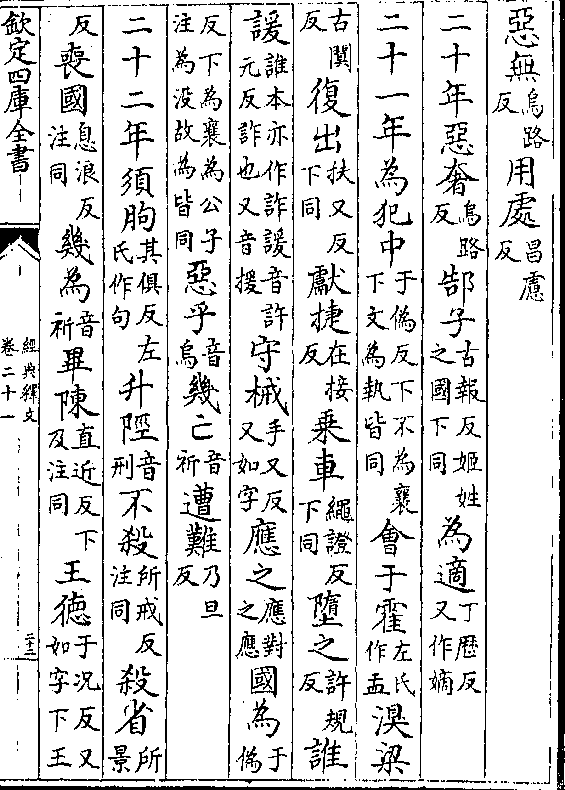 惡無烏路反用處昌慮反
二十年惡奢烏路反郜子古報反姬姓之國下同為適丁歷反又作嫡
二十一年為犯中于偽反下不為襄下文為執皆同會于霍左氏作盂湨梁
古闃反復出扶又反下同獻捷在接反乗車繩證反下同墮之許規反誰
諼誰本亦作詐諼音許元反詐也又音援守械手又反又如字應之應對之應國為于偽
反下為襄為公子注為没故為皆同惡乎音烏幾亡音祈遭難乃旦反
二十二年須朐其俱反左氏作句升陘音刑不殺所戒反注同殺省所景
反喪國息浪反注同幾為音祈畢陳直近反下及注同王徳于况反又如字下王
欽定四庫全書
經典釋文
卷二十一
二十三